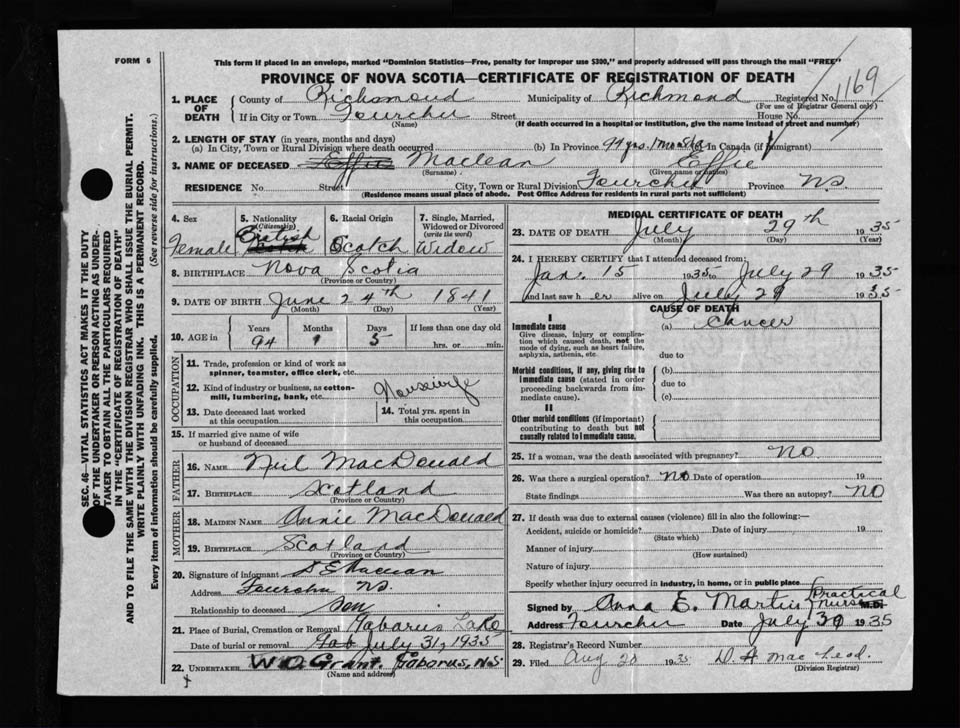 FORM 6
This form if placed in an envelope, marked "Dominion Statistics—Free, penalty for improper use $300," and properly addressed will pass through the mail "FREE"
PROVINCE OF NOVA SCOTIA—CERTIFICATE OF REGISTRATION OF DEATH
1169
1. PLACE OF DEATH
County of Richmond Municipality of Richmond Registered No.
(For use of Registrar General only)
If in City or Town Fourchu Street House No.
(Name) (If death occurred in a hospital or institution, give the name instead of street and number)
2. LENGTH OF STAY (in years, months and days)
(a) In City, Town or Rural Division where death occurred (b) In Province 94 yrs. 1 month (c) In Canada (if immigrant)
3. NAME OF DECEASED Effie Maclean Effie
(Surname) (Given name or names)
RESIDENCE No. Street City, Town or Rural Division Fourchu Province N.S.
(Residence means usual place of abode. Post Office Address for residents in rural parts not sufficient)
4. Sex 5. Nationality (Citizenship) 6. Racial Origin 7. Single, Married, Widowed or Divorced (write the word)
Female British Scotch Widow
8. BIRTHPLACE Nova Scotia
(Province or Country)
9. DATE OF BIRTH June 24th 1841
(Month) (Day) (Year)
10. AGE in Years Months Days If less than one day old
94 1 5 hrs. or min.
OCCUPATION
11. Trade, profession or kind of work as spinner, teamster, office clerk, etc.
12. Kind of industry or business, as cotton-mill, lumbering, bank, etc. Housewife
13. Date deceased last worked at this occupation
14. Total yrs. spent in this occupation
15. If married give name of wife or husband of deceased
FATHER
16. NAME Neil MacDonald
17. BIRTHPLACE Scotland
(Province or Country)
MOTHER
18. MAIDEN NAME Annie MacDonald
19. BIRTHPLACE Scotland
(Province or Country)
20. Signature of informant S E Maclean
Address Fourchu N.S.
Relationship to deceased Son
21. Place of Burial, Cremation or Removal Gabarus Lake
Date of burial or removal Gab July 31, 1935
22. UNDERTAKER W O Grant. Gabarus, N.S.
(Name and address)
MEDICAL CERTIFICATE OF DEATH
23. DATE OF DEATH July 29th 1935
(Month) (Day) (Year)
24. I HEREBY CERTIFY that I attended deceased from:
Jan. 15 1935 July 29 1935
and last saw her alive on July 29 1935
CAUSE OF DEATH
I
Immediate cause (a) Cancer
Give disease, injury or complication which caused death, not the mode of dying, such as heart failure, asphyxia, asthenia, etc.
due to
Morbid conditions, if any, giving rise to immediate cause (stated in order proceeding backwards from immediate cause).
(b)
due to
(c)
II
Other morbid conditions (if important) contributing to death but not causally related to immediate cause.
25. If a woman, was the death associated with pregnancy? NO
26. Was there a surgical operation? NO Date of operation 19
State findings Was there an autopsy? NO
27. If death was due to external causes (violence) fill in also the following:—
Accident, suicide or homicide? Date of injury 19
(State which)
Manner of injury
(How sustained)
Nature of injury
Specify whether injury occurred in industry, in home, or in public place
Signed by Anna E. Martin (Practical nurse M.D.
Address Fourchu Date July 30 1935
28. Registrar's Record Number
29. Filed Aug 20 1935 D. A MacLeod.
(Division Registrar)
SEC. 46—VITAL STATISTICS ACT MAKES IT THE DUTY
OF THE UNDERTAKER OR PERSON ACTING AS UNDER-
TAKER TO OBTAIN ALL THE PARTICULARS REQUIRED
IN THE "CERTIFICATE OF REGISTRATION OF DEATH"
AND TO FILE THE SAME WITH THE DIVISION REGISTRAR WHO SHALL ISSUE THE BURIAL PERMIT.
WRITE PLAINLY WITH UNFADING INK. THIS IS A PERMANENT RECORD.
Every item of information should be carefully supplied. (See reverse side for instructions.)